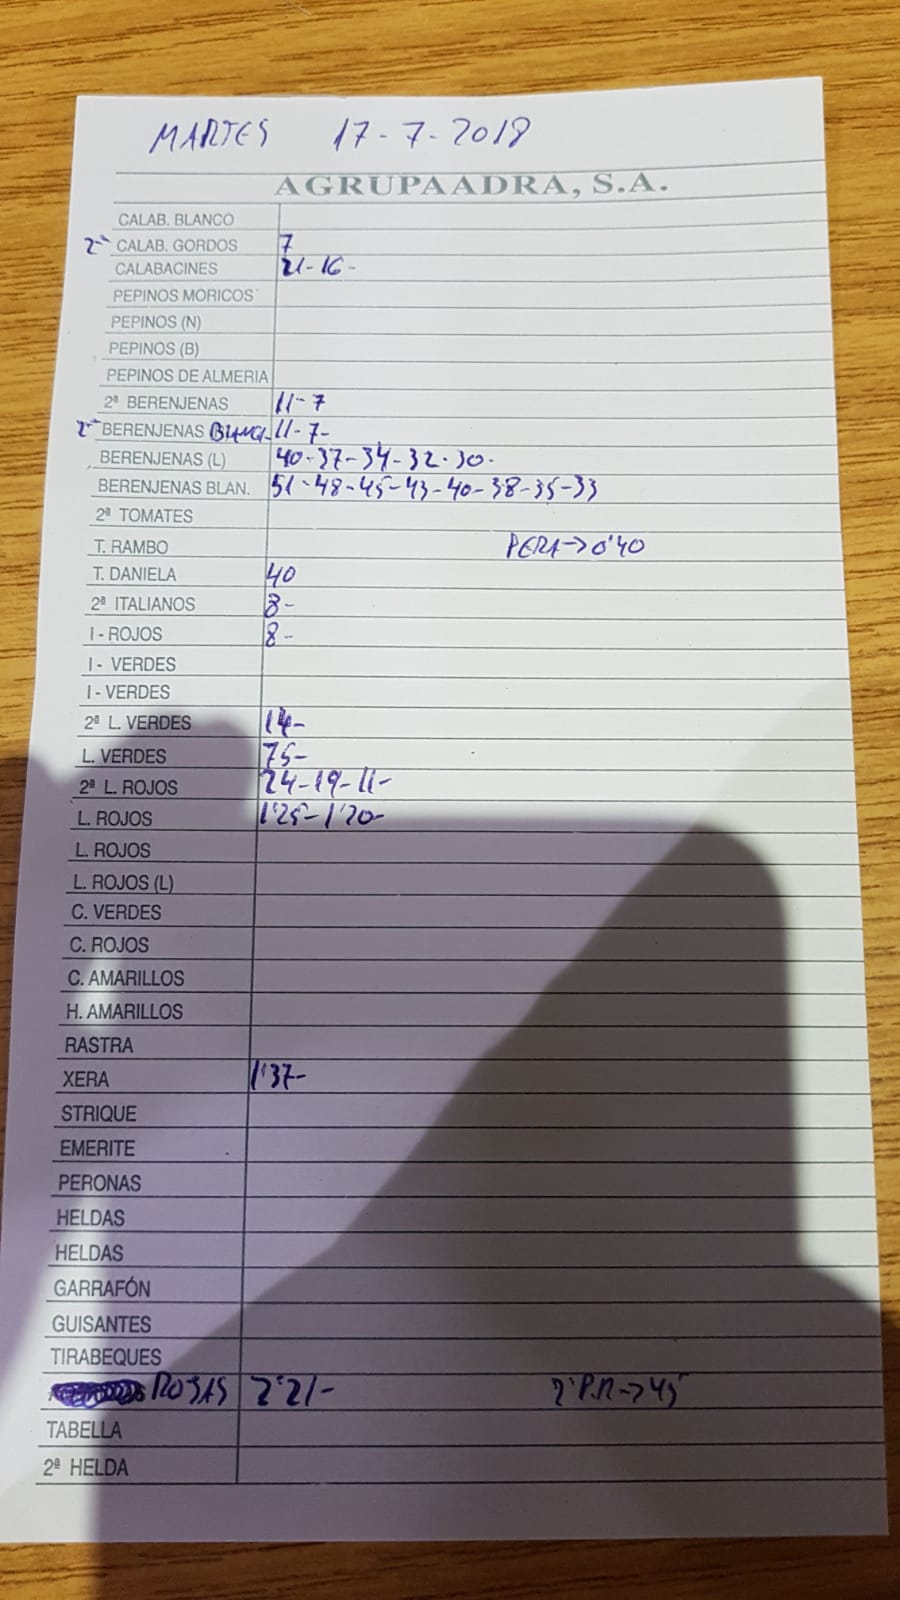 MARTES 17-7-2018
AGRUPAADRA, S.A.
CALAB. BLANCO
2ª CALAB. GORDOS 7
CALABACINES 21-16-
PEPINOS MORICOS
PEPINOS (N)
PEPINOS (B)
PEPINOS DE ALMERIA
2ª BERENJENAS 11-7
2ª BERENJENAS 11-7-
BERENJENAS (L) 40-37-34-32-30-
BERENJENAS BLAN. 51-48-45-43-40-38-35-33
2ª TOMATES
T. RAMBO PERA→0'40
T. DANIELA 40
2ª ITALIANOS 8-
I - ROJOS 8-
I - VERDES
I - VERDES
2ª L. VERDES 14-
L. VERDES 75-
2ª L. ROJOS 24-19-11-
L. ROJOS 1'25-1'20-
L. ROJOS
L. ROJOS (L)
C. VERDES
C. ROJOS
C. AMARILLOS
H. AMARILLOS
RASTRA
XERA 1'37-
STRIQUE
EMERITE
PERONAS
HELDAS
HELDAS
GARRAFÓN
GUISANTES
TIRABEQUES
ROJAS 2'21- 2ª P.R→45
TABELLA
2ª HELDA